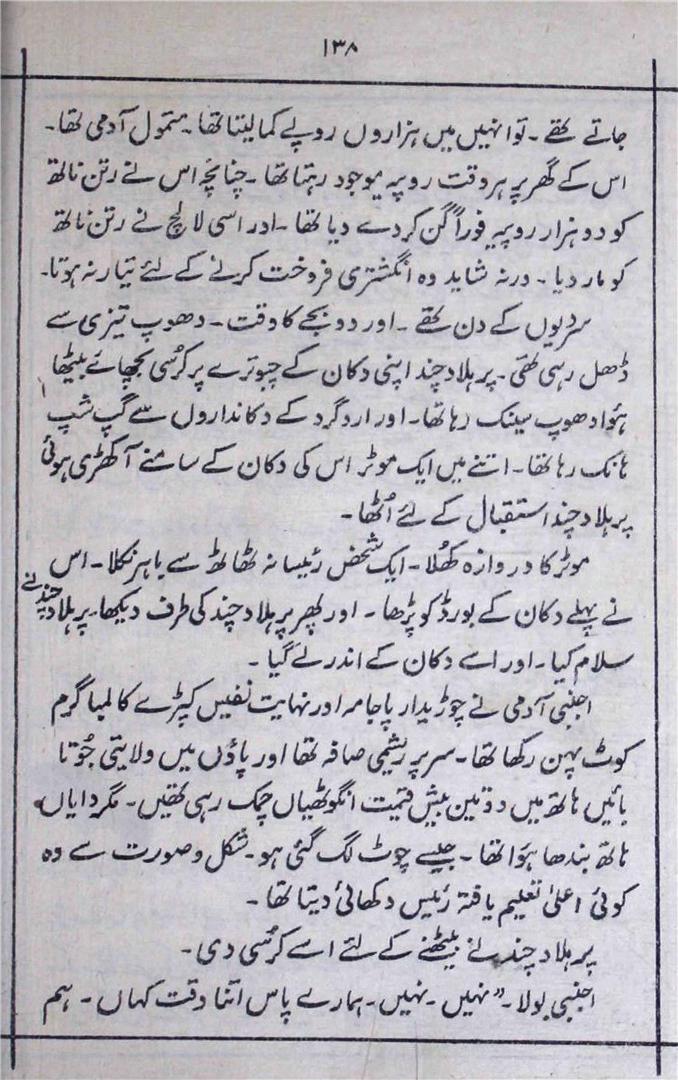 ۱۳۸
جاتے تھے ۔ تو انہیں میں ہزاروں روپے کما لیتا تھا ۔ متمول آدمی تھا ۔
اس کے گھر پر ہر وقت روپیہ موجود رہتا تھا ۔ چنانچہ اس نے رتن ناتھ
کو دو ہزار روپیہ فوراً گن کر دے دیا تھا ۔ اور اسی لالچ نے رتن ناتھ
کو مار دیا ۔ ورنہ شاید وہ انگشتری فروخت کرنے کے لئے تیار نہ ہوتا ۔
سردیوں کے دن تھے ۔ اور دو بجے کا وقت ۔ دھوپ تیزی سے
ڈھل رہی تھی ۔ پرہلاد چند اپنی دکان کے چبوترے پر کُرسی بچھائے بیٹھا
ہؤا دھوپ سینک رہا تھا ۔ اور اردگرد کے دکانداروں سے گپ شپ
ہانک رہا تھا ۔ اتنے میں ایک موٹر اس کی دکان کے سامنے آ کھڑی ہوئی
پرہلاد چند استقبال کے لئے اُٹھا ۔
موٹر کا دروازہ کھُلا ۔ ایک شخص رئیسانہ ٹھاٹھ سے باہر نکلا ۔ اس
نے پہلے دکان کے بورڈ کو پڑھا ۔ اور پھر پرہلاد چند کی طرف دیکھا ۔ پرہلاد چند نے
سلام کیا ۔ اور اسے دکان کے اندر لے گیا ۔
اجنبی آدمی نے چوڑیدار پاجامہ اور نہایت نفیس کپڑے کا لمبا گرم
کوٹ پہن رکھا تھا ۔ سر پر ریشمی صافہ تھا اور پاؤں میں ولایتی جُوتا
بائیں ہاتھ میں دو تین بیش قیمت انگوٹھیاں چمک رہی تھیں ۔ مگر دایاں
ہاتھ بندھا ہؤا تھا ۔ جیسے چوٹ لگ گئی ہو ۔ شکل و صورت سے وہ
کوئی اعلیٰ تعلیم یافتہ رئیس دکھائی دیتا تھا ۔
پرہلاد چند نے بیٹھنے کے لئے اسے کُرسی دی ۔
اجنبی بولا ۔ "نہیں ۔ نہیں ۔ ہمارے پاس اتنا وقت کہاں ۔ ہم